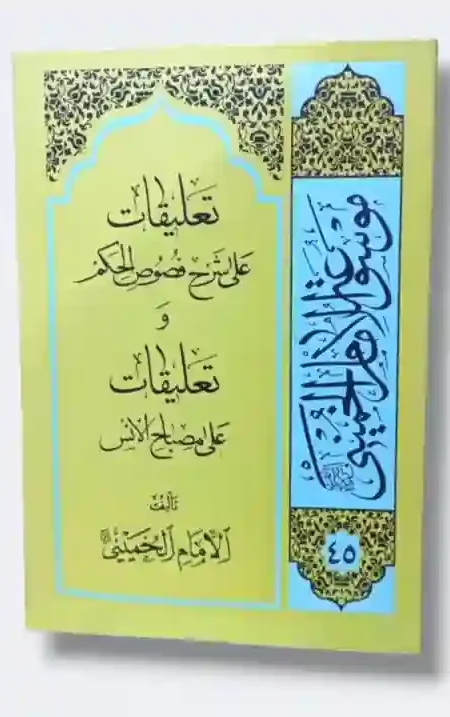 تعليقات
على شرح فصوص الحكم
و
تعليقات
على مصباح الأنس
تأليف
الإمام الخميني
موسوعة الإمام الخميني
٤٥